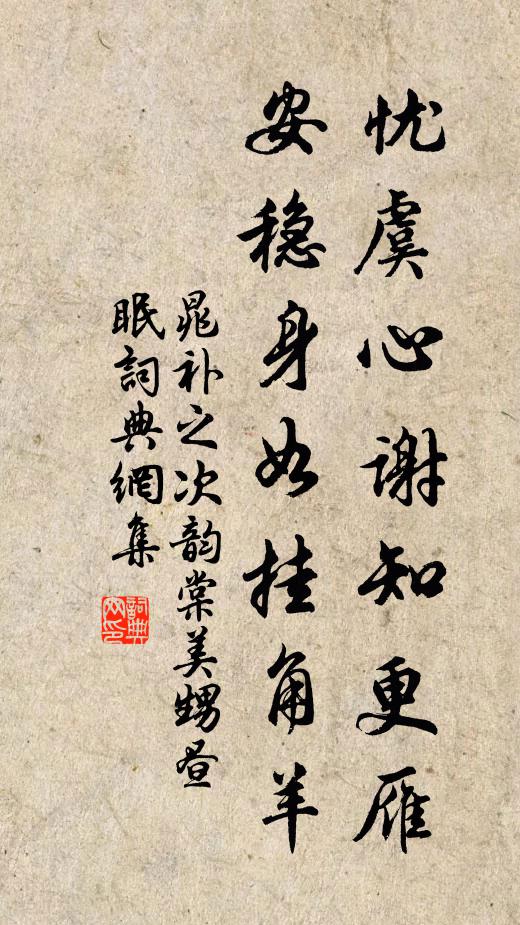 忧虞心谢知更雁
安稳身如挂角羊
晁补之次韵棠美甥昼
眠詞典網集
詞典
网印